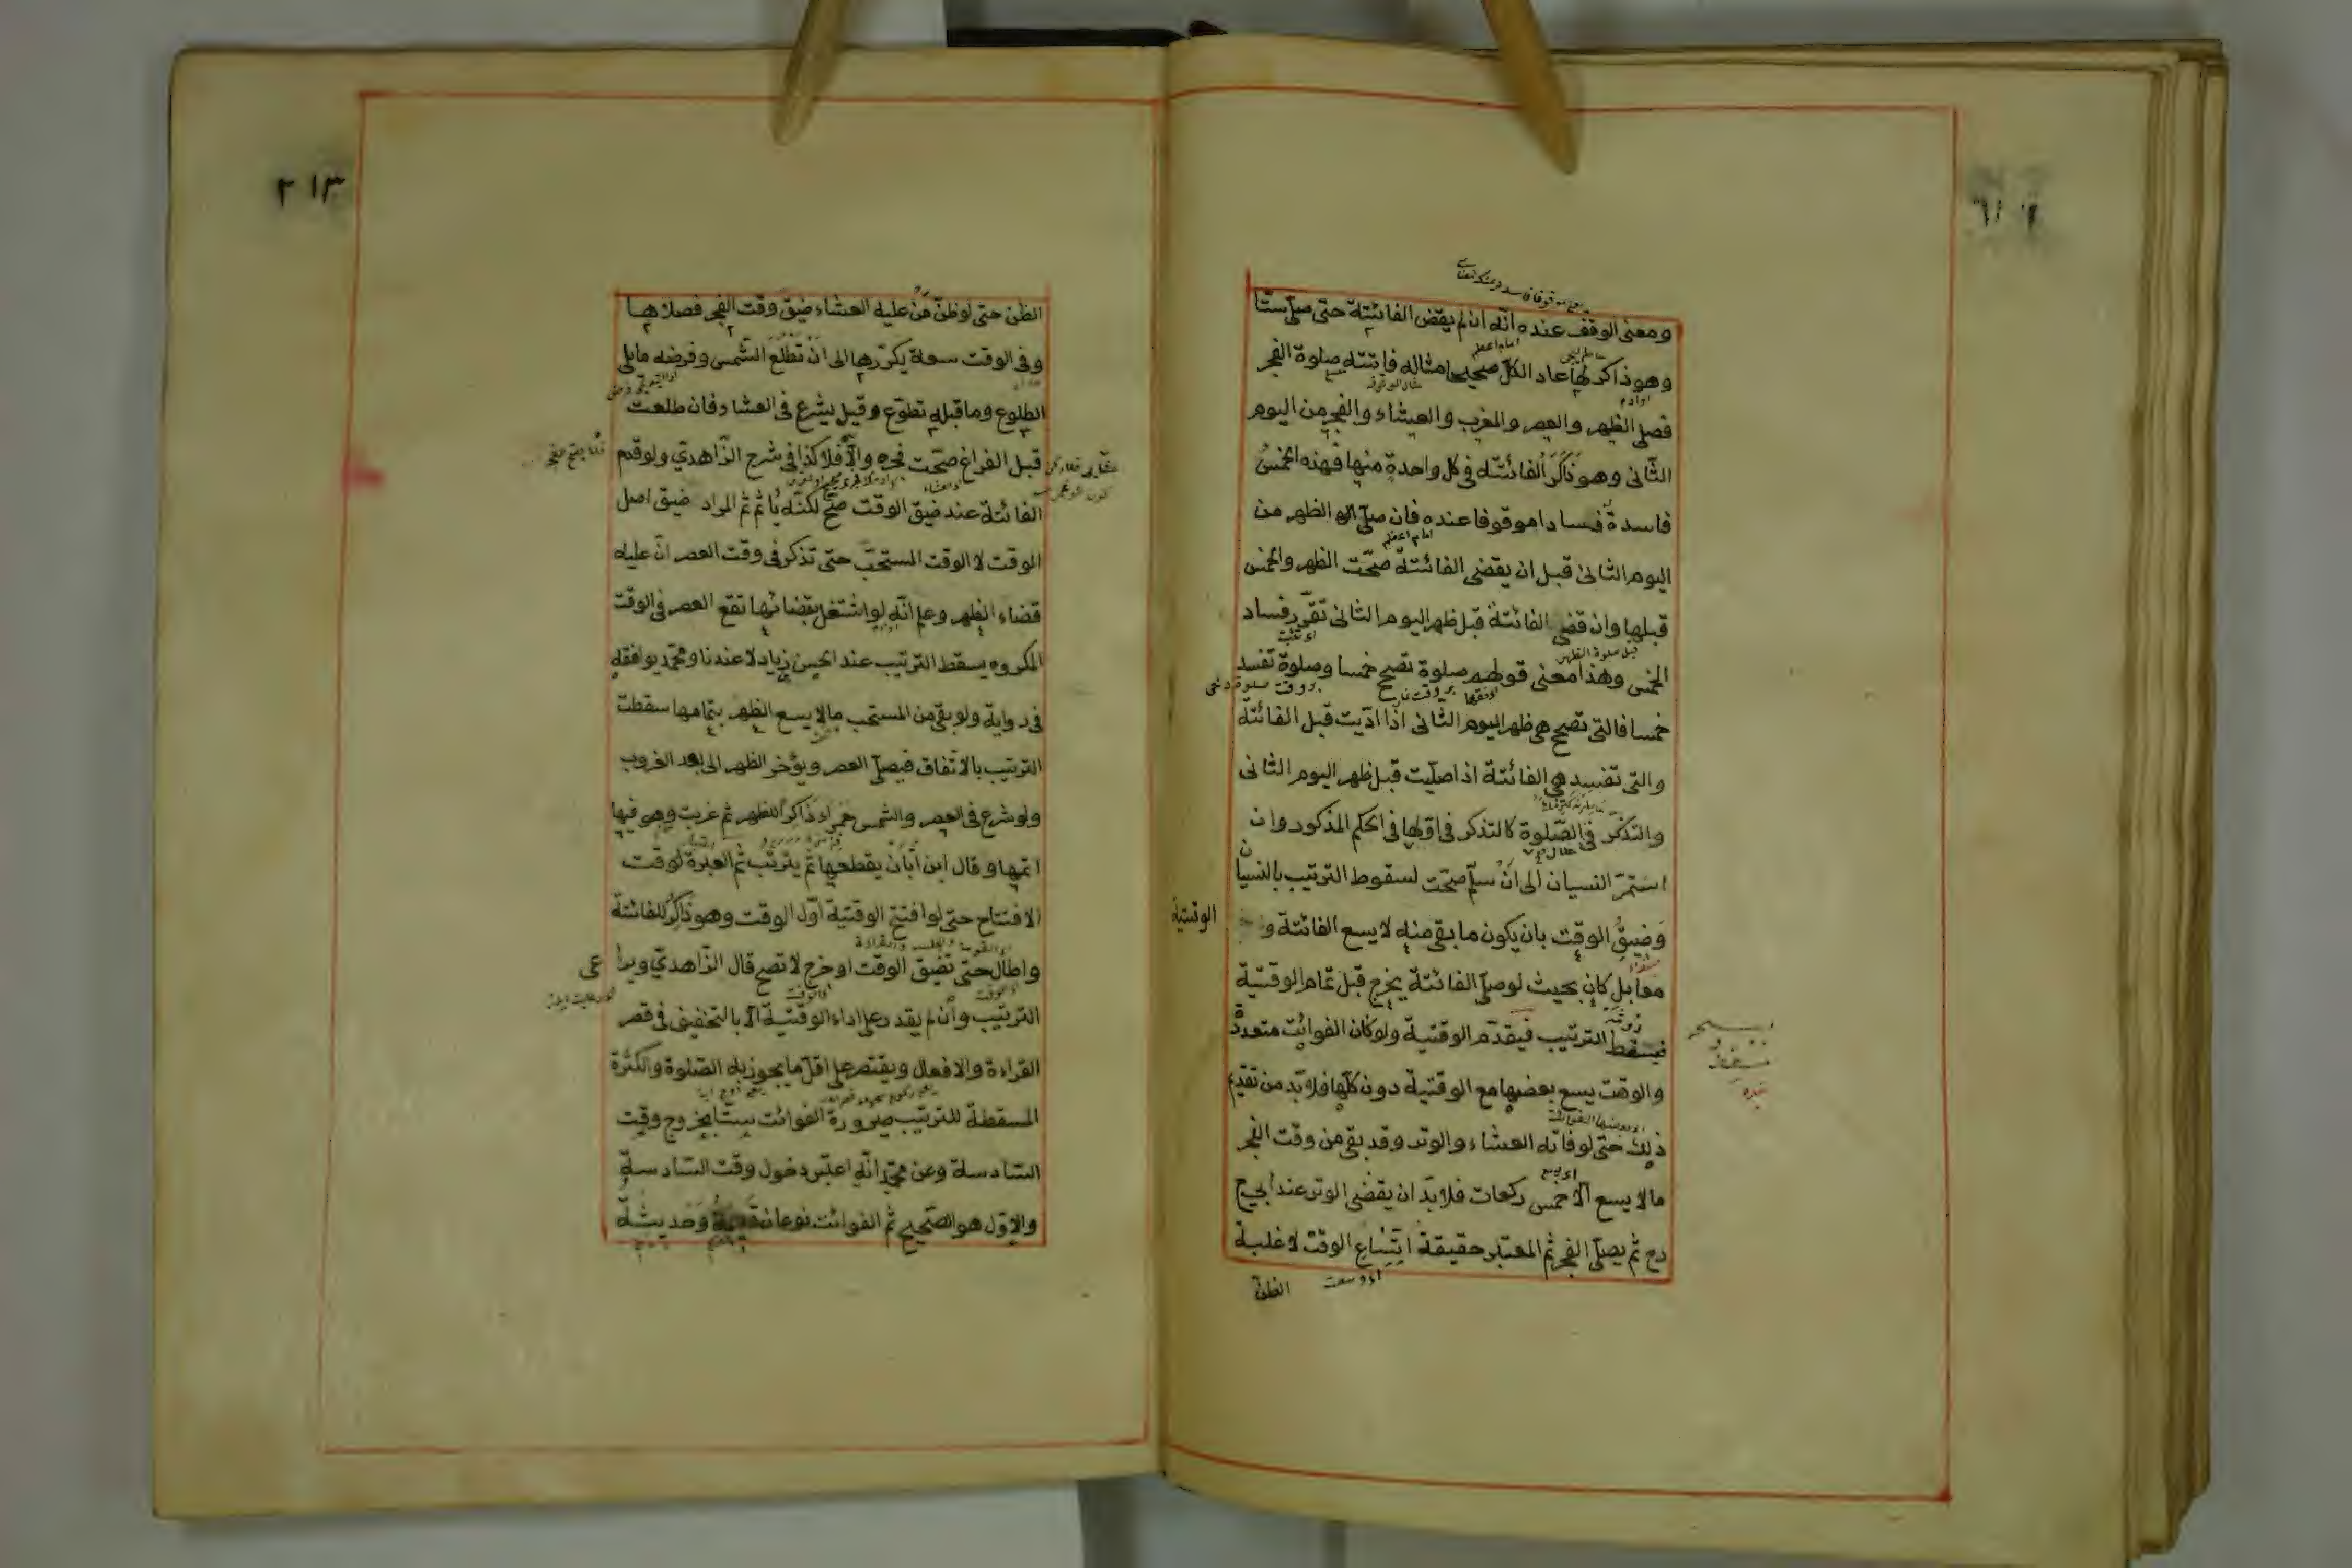 ومعنى الوقف عنده انّه ان لم يقض الفائتة حتى صلّى ستّا
وهو ذاكر لها عاد الكلّ صحيحا مثاله فاتته صلوة الفجر
فصلى الظهر والعصر والمغرب والعشاء والفجر من اليوم
الثانى وهو ذاكر الفائتة فى كل واحدة منها فهذه الخمس
فاسدة فسادا موقوفا عنده فان صلّى الظهر من
اليوم الثانى قبل ان يقضى الفائتة صحّت الظهر والخمس
قبلها وان قضى الفائتة قبل ظهر اليوم الثانى تقرّر فساد
الخمس وهذا معنى قولهم صلوة تصح خمسا وصلوة تفسد
خمسا فالتى تصح هى ظهر اليوم الثانى اذا ادّيت قبل الفائتة
والتى تفسد هى الفائتة اذا صلّيت قبل ظهر اليوم الثانى
والتذكّر فى الصّلوة كالتذكر فى اوّلها فى الحكم المذكور وان
استمرّ النسيان الى ان سلّم صحّت لسقوط الترتيب بالنسيان
وضيق الوقت بان يكون ما بقى منه لا يسع الفائتة و
الوقتية
معا بل كان بحيث لو صلّى الفائتة يخرج قبل تمام الوقتيّة
فيسقط الترتيب فيقدّم الوقتية ولو كان الفوائت متعدّدة
والوقت يسع بعضها مع الوقتية دون كلّها فلا بدّ من تقديم
ذلك حتى لو فاته العشاء والوتر وقد بقى من وقت الفجر
ما لا يسع الّا خمس ركعات فلا بدّ ان يقضى الوتر عند ابى ح
رح ثم يصلّى الفجر ثم المعتبر حقيقة اتّساع الوقت لا غلبة
الظنّ
٢١٣
الظن حتى لو ظنّ مَن عليه العشاء ضيق وقت الفجر فصلاها
وفى الوقت سعة يكرّرها الى ان تطلع الشمس وفرضه ما يلى
الطلوع وما قبله تطوّع وقيل يشرع فى العشاء فان طلعت
قبل الفراغ صحّت فجره والّا فلا كذا فى شرح الزّاهديّ ولو قدم
الفائتة عند ضيق الوقت صحّ لكنّه يأثم ثم المراد ضيق اصل
الوقت لا الوقت المستحبّ حتى تذكر فى وقت العصر انّ عليه
قضاء الظهر وعلم انّه لو اشتغل بقضائها تقع العصر فى الوقت
المكروه يسقط الترتيب عند الحسن بن زياد لا عندنا ومحمّد يوافقه
فى رواية ولو بقى من المستحب ما لا يسع الظهر بتمامها سقطت
الترتيب بالاتفاق فيصلّى العصر ويؤخر الظهر الى بعد الغروب
ولو شرع فى العصر والشمس حمراء ذاكرا للظهر ثم غربت وهو فيها
اتمّها وقال ابن ابّان يقطعها ثم يترتّب ثم العبرة لوقت
الافتتاح حتى لو افتتح الوقتيّة اوّل الوقت وهو ذاكر للفائتة
واطال حتى تضيق الوقت او خرج لا تصح قال الزّاهديّ ويراعى
الترتيب وان لم يقدر على اداء الوقتيّة الّا بالتخفيف فى قصر
القراءة والافعال ويقتصر على اقلّ ما يجوز به الصّلوة والكثرة
المسقطة للترتيب صيرورة الفوائت ستّا بخروج وقت
السّادسة وعن محمّد انّه اعتبر دخول وقت السّادسة
والاوّل هو الصّحيح ثم الفوائت نوعان قديمة وحديثة